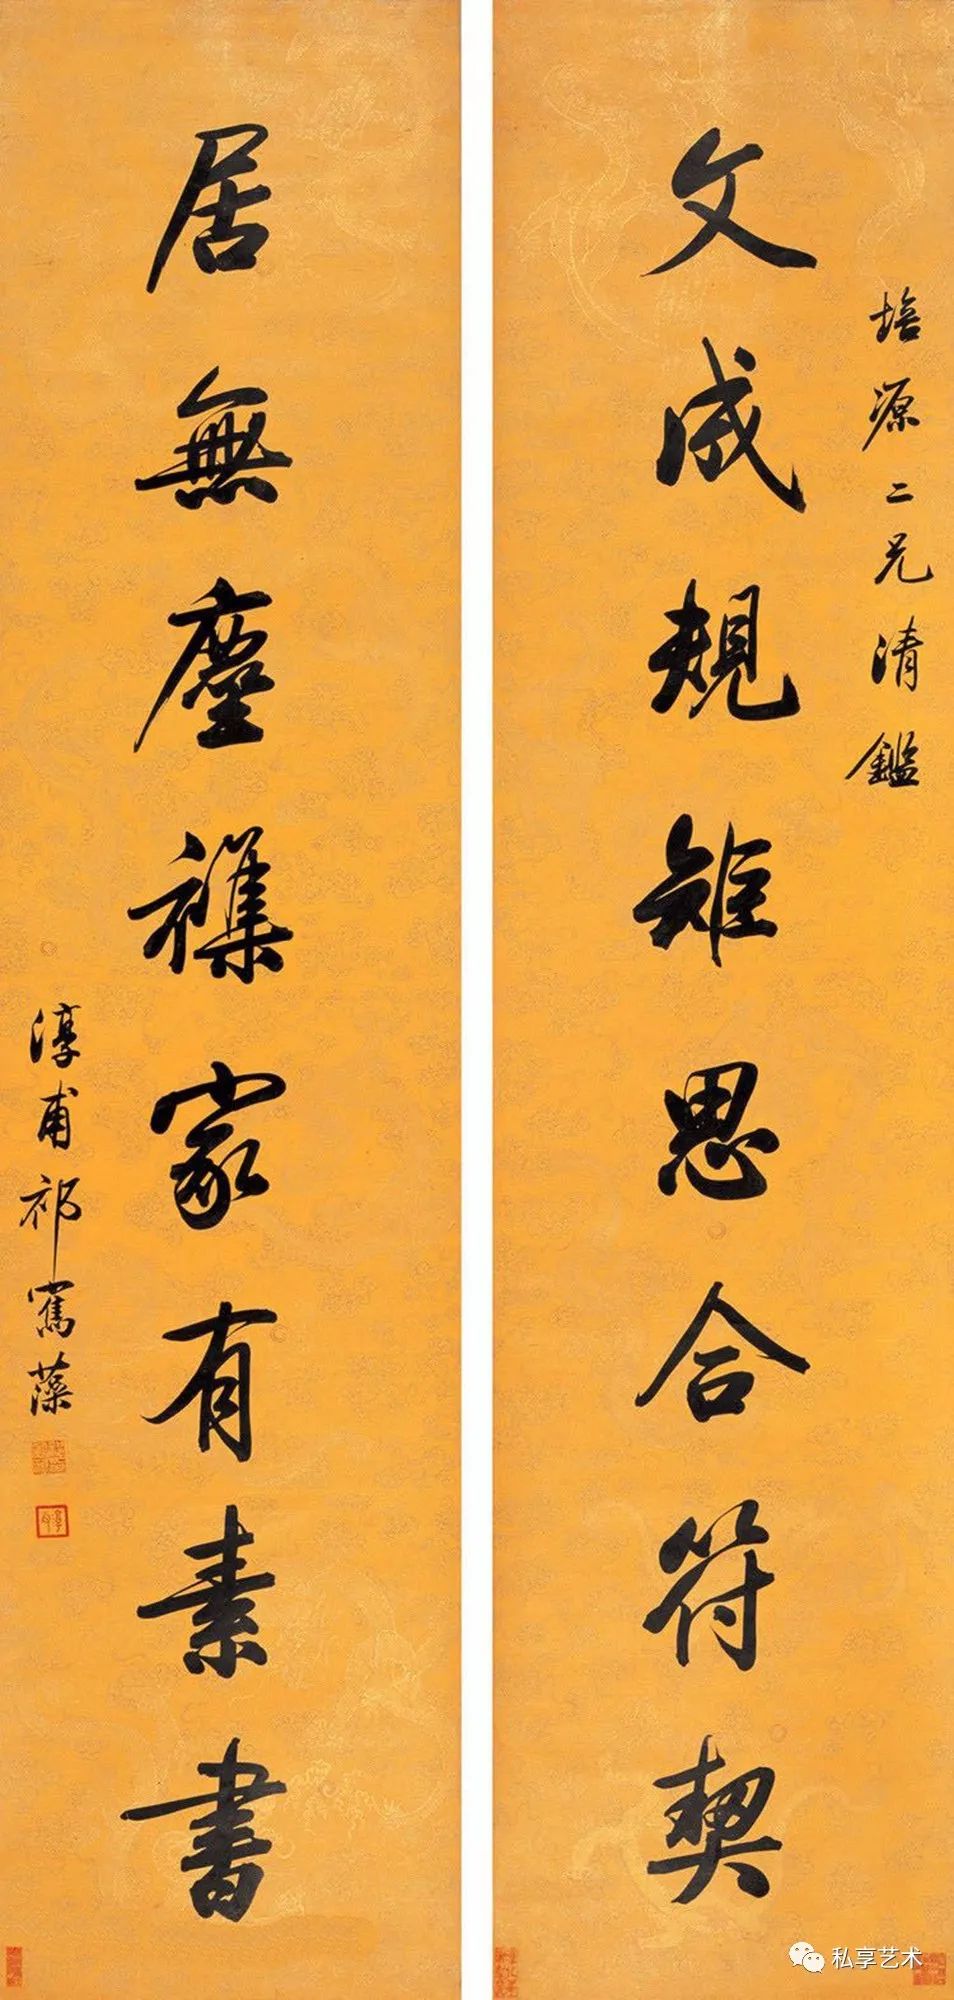 培源二兄清鑑
文成規矩思合符契
居無塵襍家有素書
淳甫祁寯藻
私享艺术